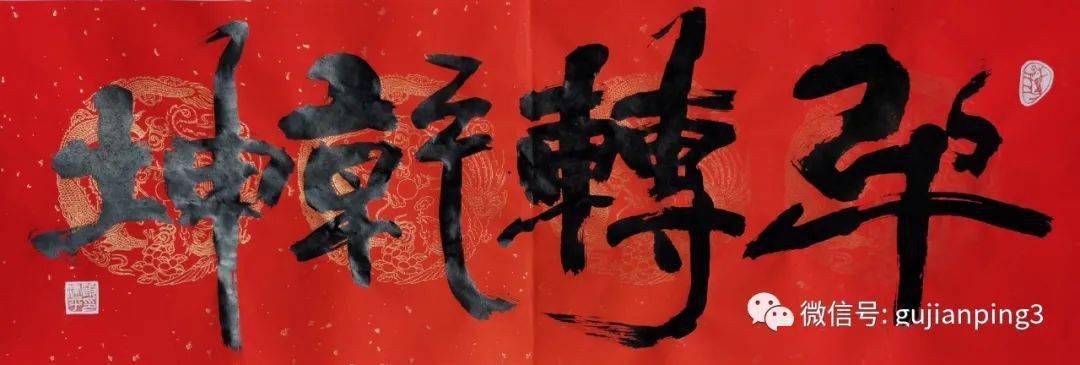 牛轉乾坤
微信号: gujianping3